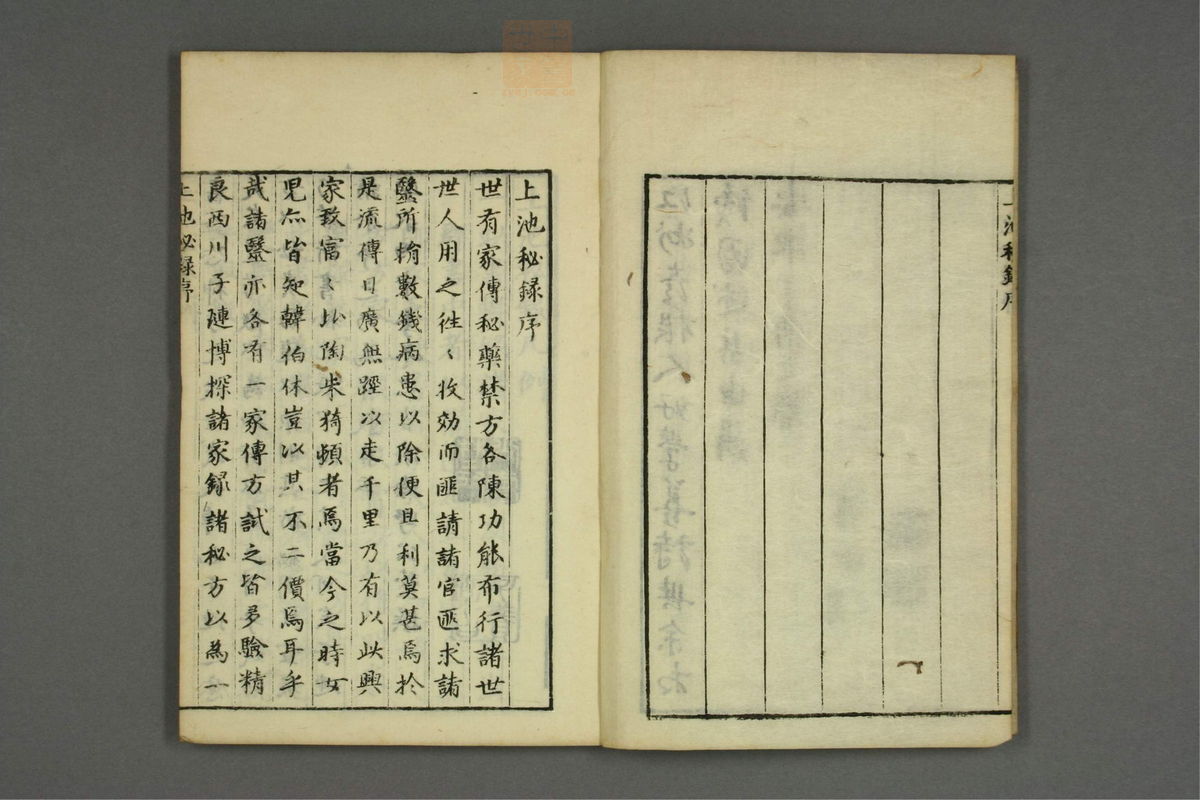 上池秘録序
世有家傳秘藥禁方各陳功能布行諸世
世人用之徃〻收効而匪請諸官匪求諸
毉所捐數錢病患以除便且利莫甚焉於
是流傳日廣無踁以走千里乃有以此興
家致富〻比陶朱猗頓者焉當今之時女
児亦皆知韓伯休豈以其不二價焉耳乎
哉諸毉亦各有一家傳方試之皆多驗精
良西川子璉博探諸家録諸秘方以為一
上池秘録序
上池秘録序